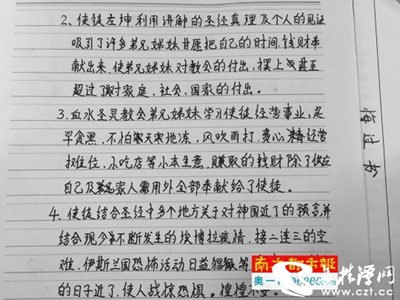 2、使徒左坤利用讲解的圣经真理及个人的见证
吸引了许多弟兄姊妹甘愿把自己的时间、钱财奉
献出来,使弟兄姊妹对教会的付出,摆上甚至
超过了对家庭、社会、国家的付出。
3.血水圣灵教会弟兄姊妹学习使徒经营事业,起
早贪黑,不怕寒天地冻,风吹雨打,费心经营
拉住位,小吃店等小本生意,赚取的钱财除了供应
自己及家人需用外全部奉献给了使徒。
4、使徒结合圣经中多个地方关于对神国近了的预言并
结合现今不断发生的埃博拉疫情,接二连三的空
难,伊斯兰国恐怖活动日益猖獗等
的日子近了,使人战惊恐惧,惶惶不
悔过书
南方都市报
奥一
株洲网
www.zzt.com